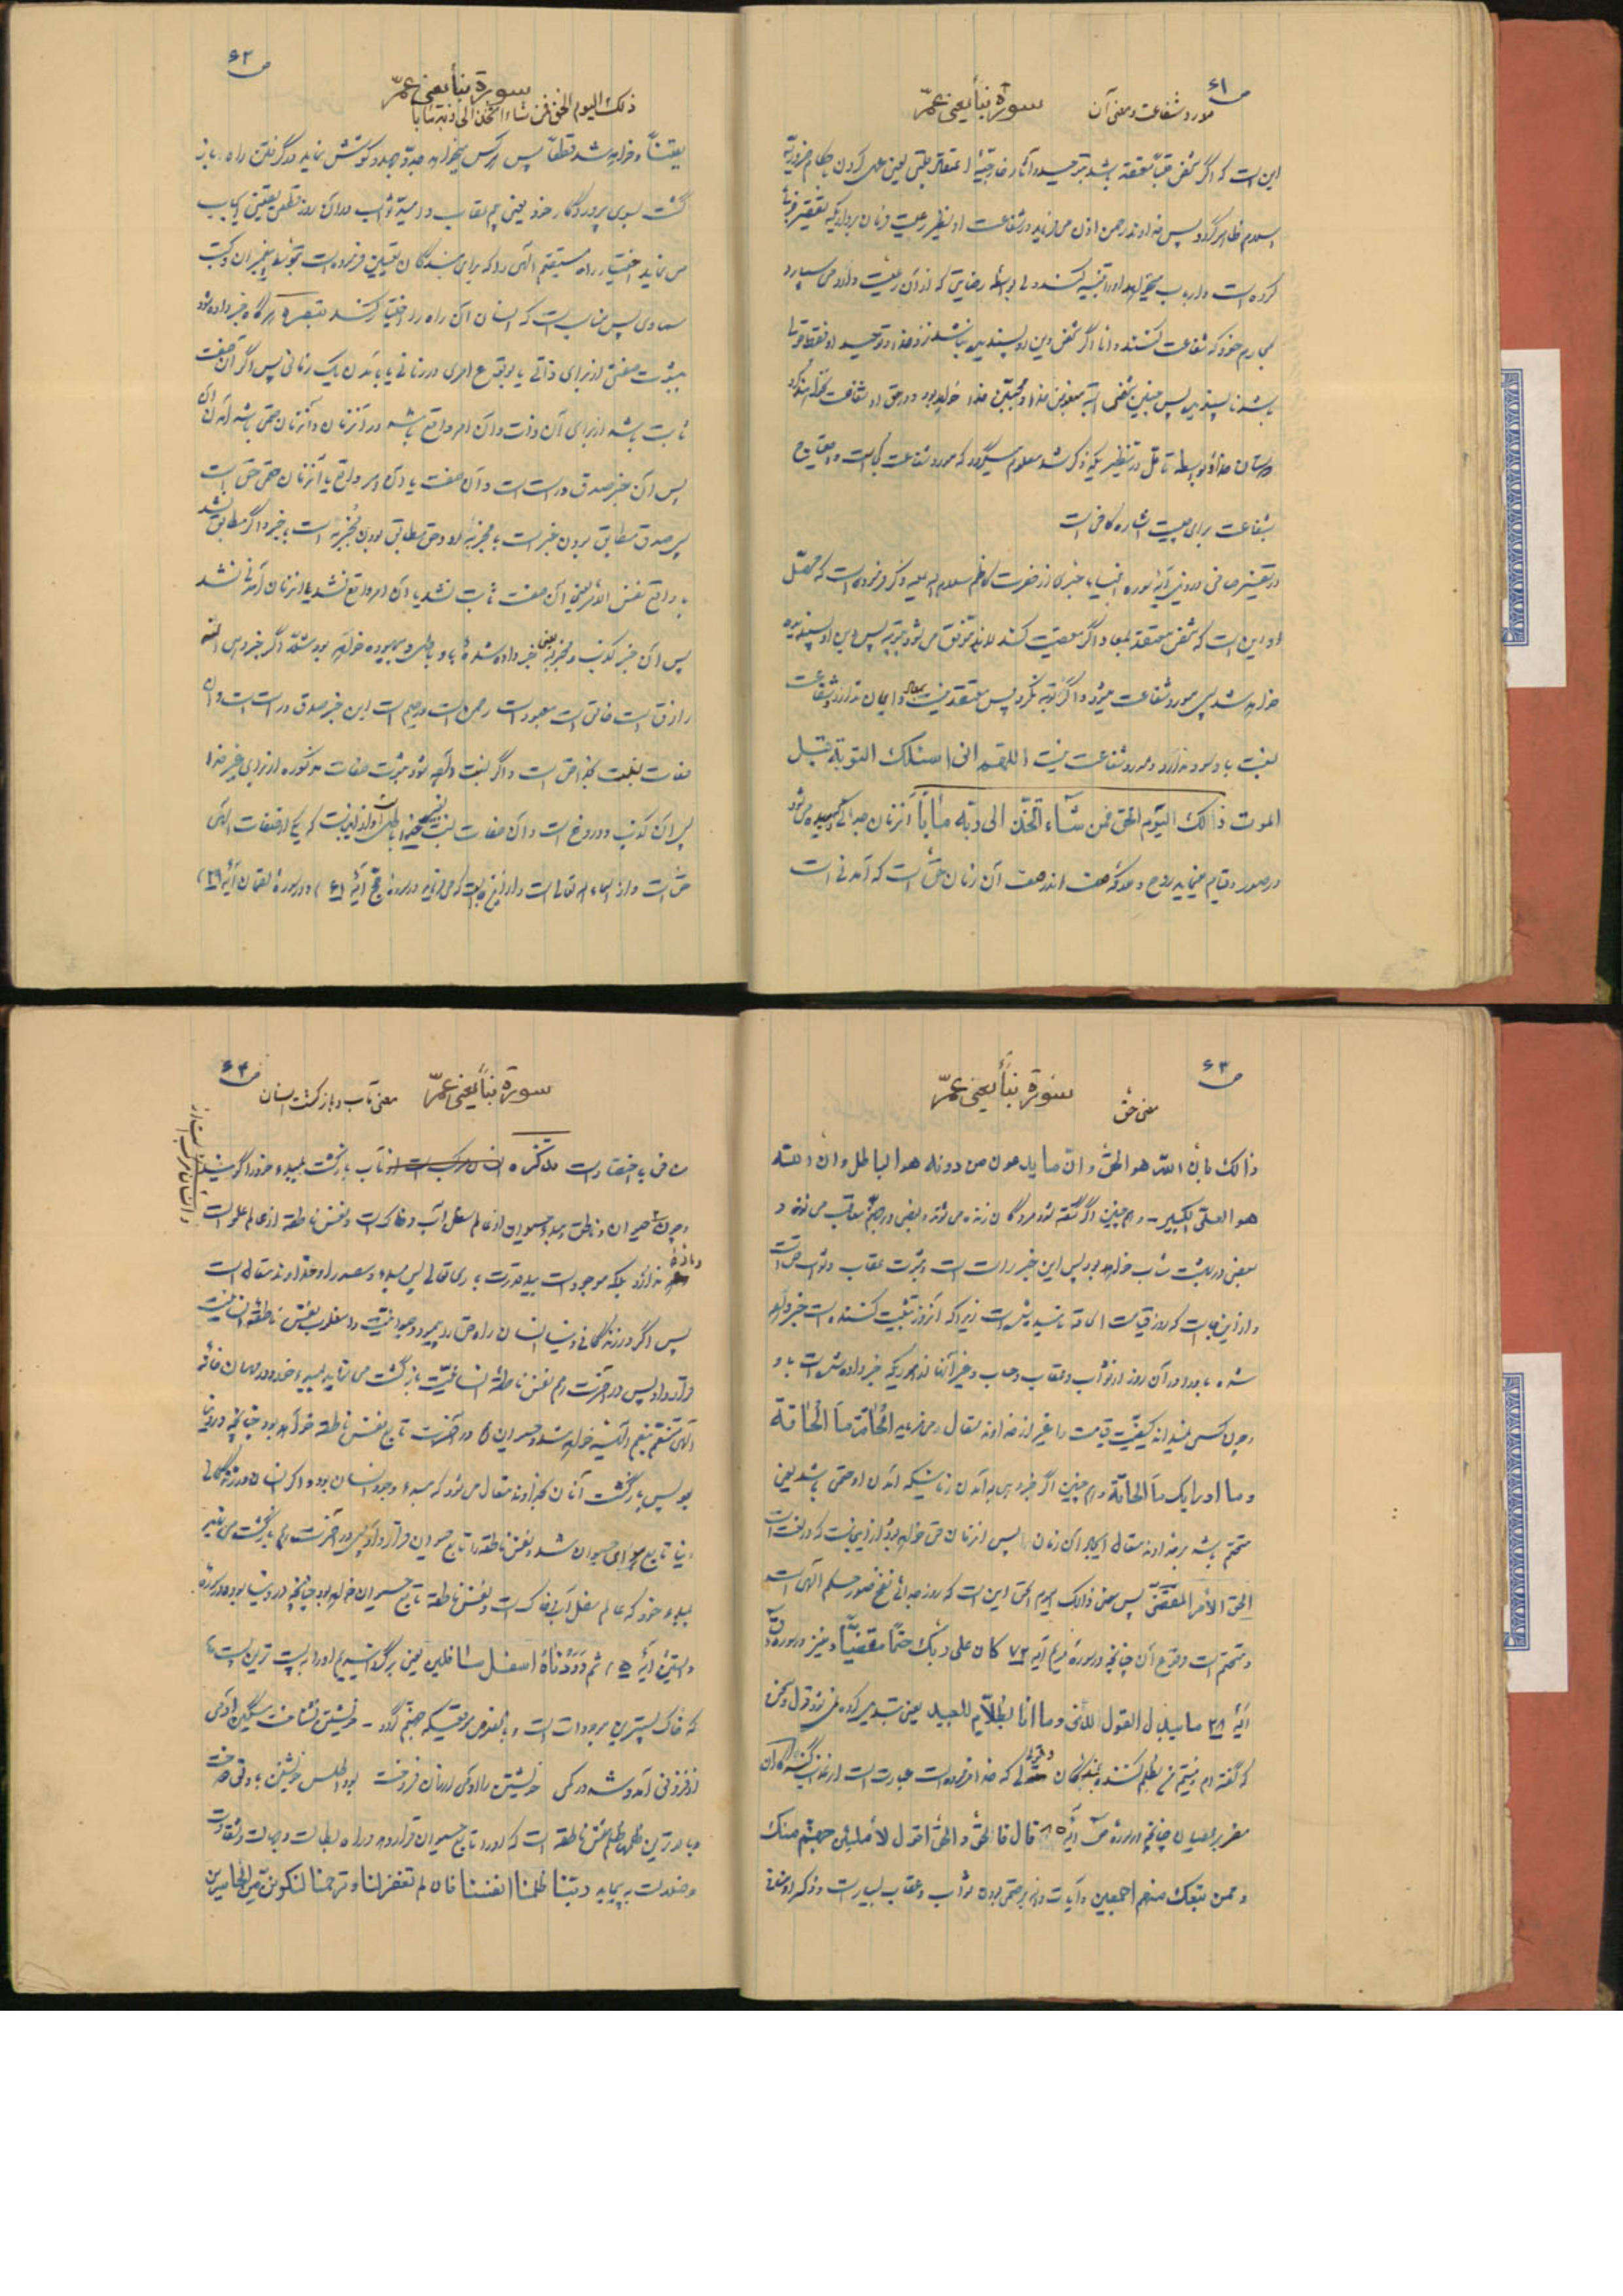 ص ۶۱
مورد شفاعت و معنی آن
سورة نبأ یعنی عمّ
این است که اگر شخص معتقد باشد بتوحید و آثار خارجیّهٔ اعتقاد قلبی یعنی عمل کردن باحکام ضروریّه
اسلام ظاهر گردد پس خداوند رحمن اذن می‌فرماید در شفاعت او نظیر رعیت
کرده است و ارباب میخواهد او را تنبیه کند ولی بواسطه رضایتی که از آن رعیّت دارد می سپارد
بمحارم خود که شفاعت کنند و اما اگر شخص دین او پسندیده نباشد نزد خدا و توحید او فقط
باشد ناپسندیده پس چنین شخصی البته مبغوض خدا و محبّین خدا خواهد بود و در حق او شفاعت نخواهند کرد
دوستان خدا و بواسطه تأمّل در تنظیریکه ذکر شد معلوم میگردد که مورد شفاعت کجاست و احتیاج
بشفاعت برای چیست اشاره کافی است
در تفسیر صافی در ذیل آیهٔ سوره انبیاء خبری از حضرت کاظم سلام الله علیه ذکر فرموده است که محصّل
او این است که شخص معتقد بمعاد اگر معصیت کند البته موفق می شود بتوبه پس دین او پسندیده
خواهد شد پس مورد شفاعت میشود و اگر توبه نکرد پس معتقد نیست بمعاد و ایمان ندارد و شفاعت
نسبت باو سود ندارد و مورد شفاعت نیست اللهم انی اسئلک التوبة قبل
الموت ذالک الیوم الحق فمن شاء اتّخذ الی ربّه مآباً آنزمان صدائی دمیده می شود
در صور و قیام مینماید روح و ملائکه صف اندر صف آن زمان حقّ است که آمدنی است
ص ۶۲
سورة نبأ یعنی عمّ
ذلک الیوم الحق فمن شاء اتخذ الی ربّه مآبا
یقیناً و خواهد شد قطعاً پس هر کس میخواهد جدّ و جهد و کوشش نماید در گرفتن راه باز
گشت بسوی پروردگار خود یعنی بیم عقاب و امید ثواب در آن روز قطعی یقینی ایجاب
می نماید اختیار راه مستقیم الهی را که برای بندگان تعیین فرموده است بتوسّط پیغمبران و کتب
سماوی پس مناسب است که انسان آن راه را اختیار کند تبصره هر گاه خبر داده شود
بثبوت صفتی از برای ذاتی یا بوقوع امری در زمانی یا بآمدن یک زمانی پس اگر آن صفت
ثابت باشد از برای آن ذات و آن امر واقع باشد در آنزمان و آنزمان حتمی باشد آمدن آن
پس آن خبر صدق و راست است و آن صفت یا آن امر واقع یا آنزمان حقّ است
پس صدق مطابق بودن خبر است با مخبرٌبه او و حق مطابق بودن مخبربه است با خبر و اگر مطابق نشد
با واقع نفس الامر یعنی آن صفت ثابت نشد یا آن امر واقع نشد یا آنزمان آمدنی نشد
پس آن خبر کذب و مخبربه یعنی خبر داده شده باو باطل و بیهوده خواهد بود مثلاً اگر خبر دهی الله
رازق است خالق است معبود است رحمن است و رحیم است این خبر صدق و راست است و آن
صفات نسبت بخدا حق است و اگر نسبت داده شود ثبوت صفات مذکوره از برای غیر خدا
پس آن کذب و دروغ است و آن صفات نسبت بغیر خدا باطل است و از اینجاست که یکی از صفات الهی
حق است و از اسماء الله تعالی است و از اینجهت است که می فرماید در سورهٔ حج آیهٔ ۶۱ و در سورهٔ لقمان آیهٔ ۲۹
ص ۶۳
سورة نبأ یعنی عمّ
معنی حقّ
ذالک بانّ الله هو الحقّ و انّ ما یدعون من دونه هو الباطل و ان الله
هو العلیّ الکبیر - و هم چنین اگر گفته شود مردگان زنده می شوند و بعضی در جهنّم معاقب می شوند و
بعضی در بهشت مثاب خواهند بود پس این خبر راست است و ثبوت عقاب و ثواب حق است
و از این باب است که روز قیامت الحاقه نامیده شده است زیرا که آنروز تثبیت کننده است خبر داده
شده باو را و در آن روز از ثواب و عقاب و حساب و غیر آنها از هر چیزیکه خبر داده شده است باو
و چون کسی نمیداند کیفیّت قیامت را غیر از خداوند متعال می فرماید الحاقّة ما الحاقة
و ما ادرایک ما الحاقّة و هم چنین اگر خبر دهی بآمدن زمانیکه آمدن او حتمی باشد یعنی
متحتّم باشد بر خداوند متعال ایجاد آن زمان پس آنزمان حق خواهد بود از این جهت که در لغت است
الحق الأمر المقضیّ پس معنی ذالک الیوم الحق این است که روز صدائی نفخ صور حکم الهی است
و متحتّم است وقوع آن چنانچه در سورهٔ مریم آیه ۷۲ کان علی ربّک حتماً مقضیّاً و نیز در سورهٔ ق
آیهٔ ۲۸ ما یبدّل القول لدیّ و ما انا بظلاّم للعبید یعنی تبدیل کرده نمی شود قول و سخن
که گفته ام و نیستم من ظلم کننده ببندگان و قولی که خدا فرموده است عبارت است از عذاب گنه کاران
چنانچه در سورهٔ ص آیهٔ ۸۵ قال فالحقّ و الحقّ اقول لأملئنّ جهنّم منک
و ممن تبعک منهم اجمعین و آیات داله بر حتمی بودن ثواب و عقاب بسیار است و ذکر او
ص ۶۴
سورة نبأ یعنی عمّ
معنی مآب و بازگشت انسان
منافی با اختصار است تذکره مآب بازگشت بمبدء خود را گویند
و انسان مرکب است از
و چون حیوان و ناطق و مبدء حیوان از عالم سفلی آب و خاک است و نفس ناطقه از عالم علوی است
و مادّهٔ ندارد بلکه موجود است بید قدرت باری تعالی پس مبدء و مصدر او خداوند متعال است
پس اگر در زندگانی دنیا انسان راه حق را پیمود و حیوانیّت را مغلوب نفس ناطقهٔ انسانیّت
قرار داد پس در آخرت هم نفس ناطقهٔ انسانیّت بازگشت می نماید بمبدء خود و در مهمان خانهٔ
الهی متنعّم بنعم الهیّه خواهد شد و حیوان او در آخرت تابع نفس ناطقه خواهد بود چنانچه در دنیا
بود پس بازگشت آنان بخداوند متعال می شود که مبدء وجود انسان بوده و اگر انسان در زندگانی
دنیا تابع هوای حیوان شد و نفس ناطقه را تابع حیوان قرار داد پس در آخرت هم بازگشت می نماید
بمبدء خود که عالم سفل آب و خاک است و نفس ناطقه تابع حیوان خواهد بود چنانچه در دنیا بوده در سورهٔ
والتین آیهٔ ۵ ثم رددناه اسفل سافلین یعنی برگردانیدیم او را به پست ترین پستها
که خاک پستترین موجودات است و بالخصوص در وقتیکه جهنّم گردد - خویشتن نشناخت مسکین آدمی
از فزونی آمد و شد در کمی خویشتن را آدمی ارزان فروخت بود اطلس خویشتن بر دلقی دوخت
و بالاترین ظلمها ظلم بنفس ناطقه است که او را تابع حیوان قرار دهد و راه بطالت و جهالت و شقاوت
و ضلالت به پیماید ربّنا ظلمنا انفسنا فان لم تغفر لنا و ترحمنا لنکوننّ من الخاسرین